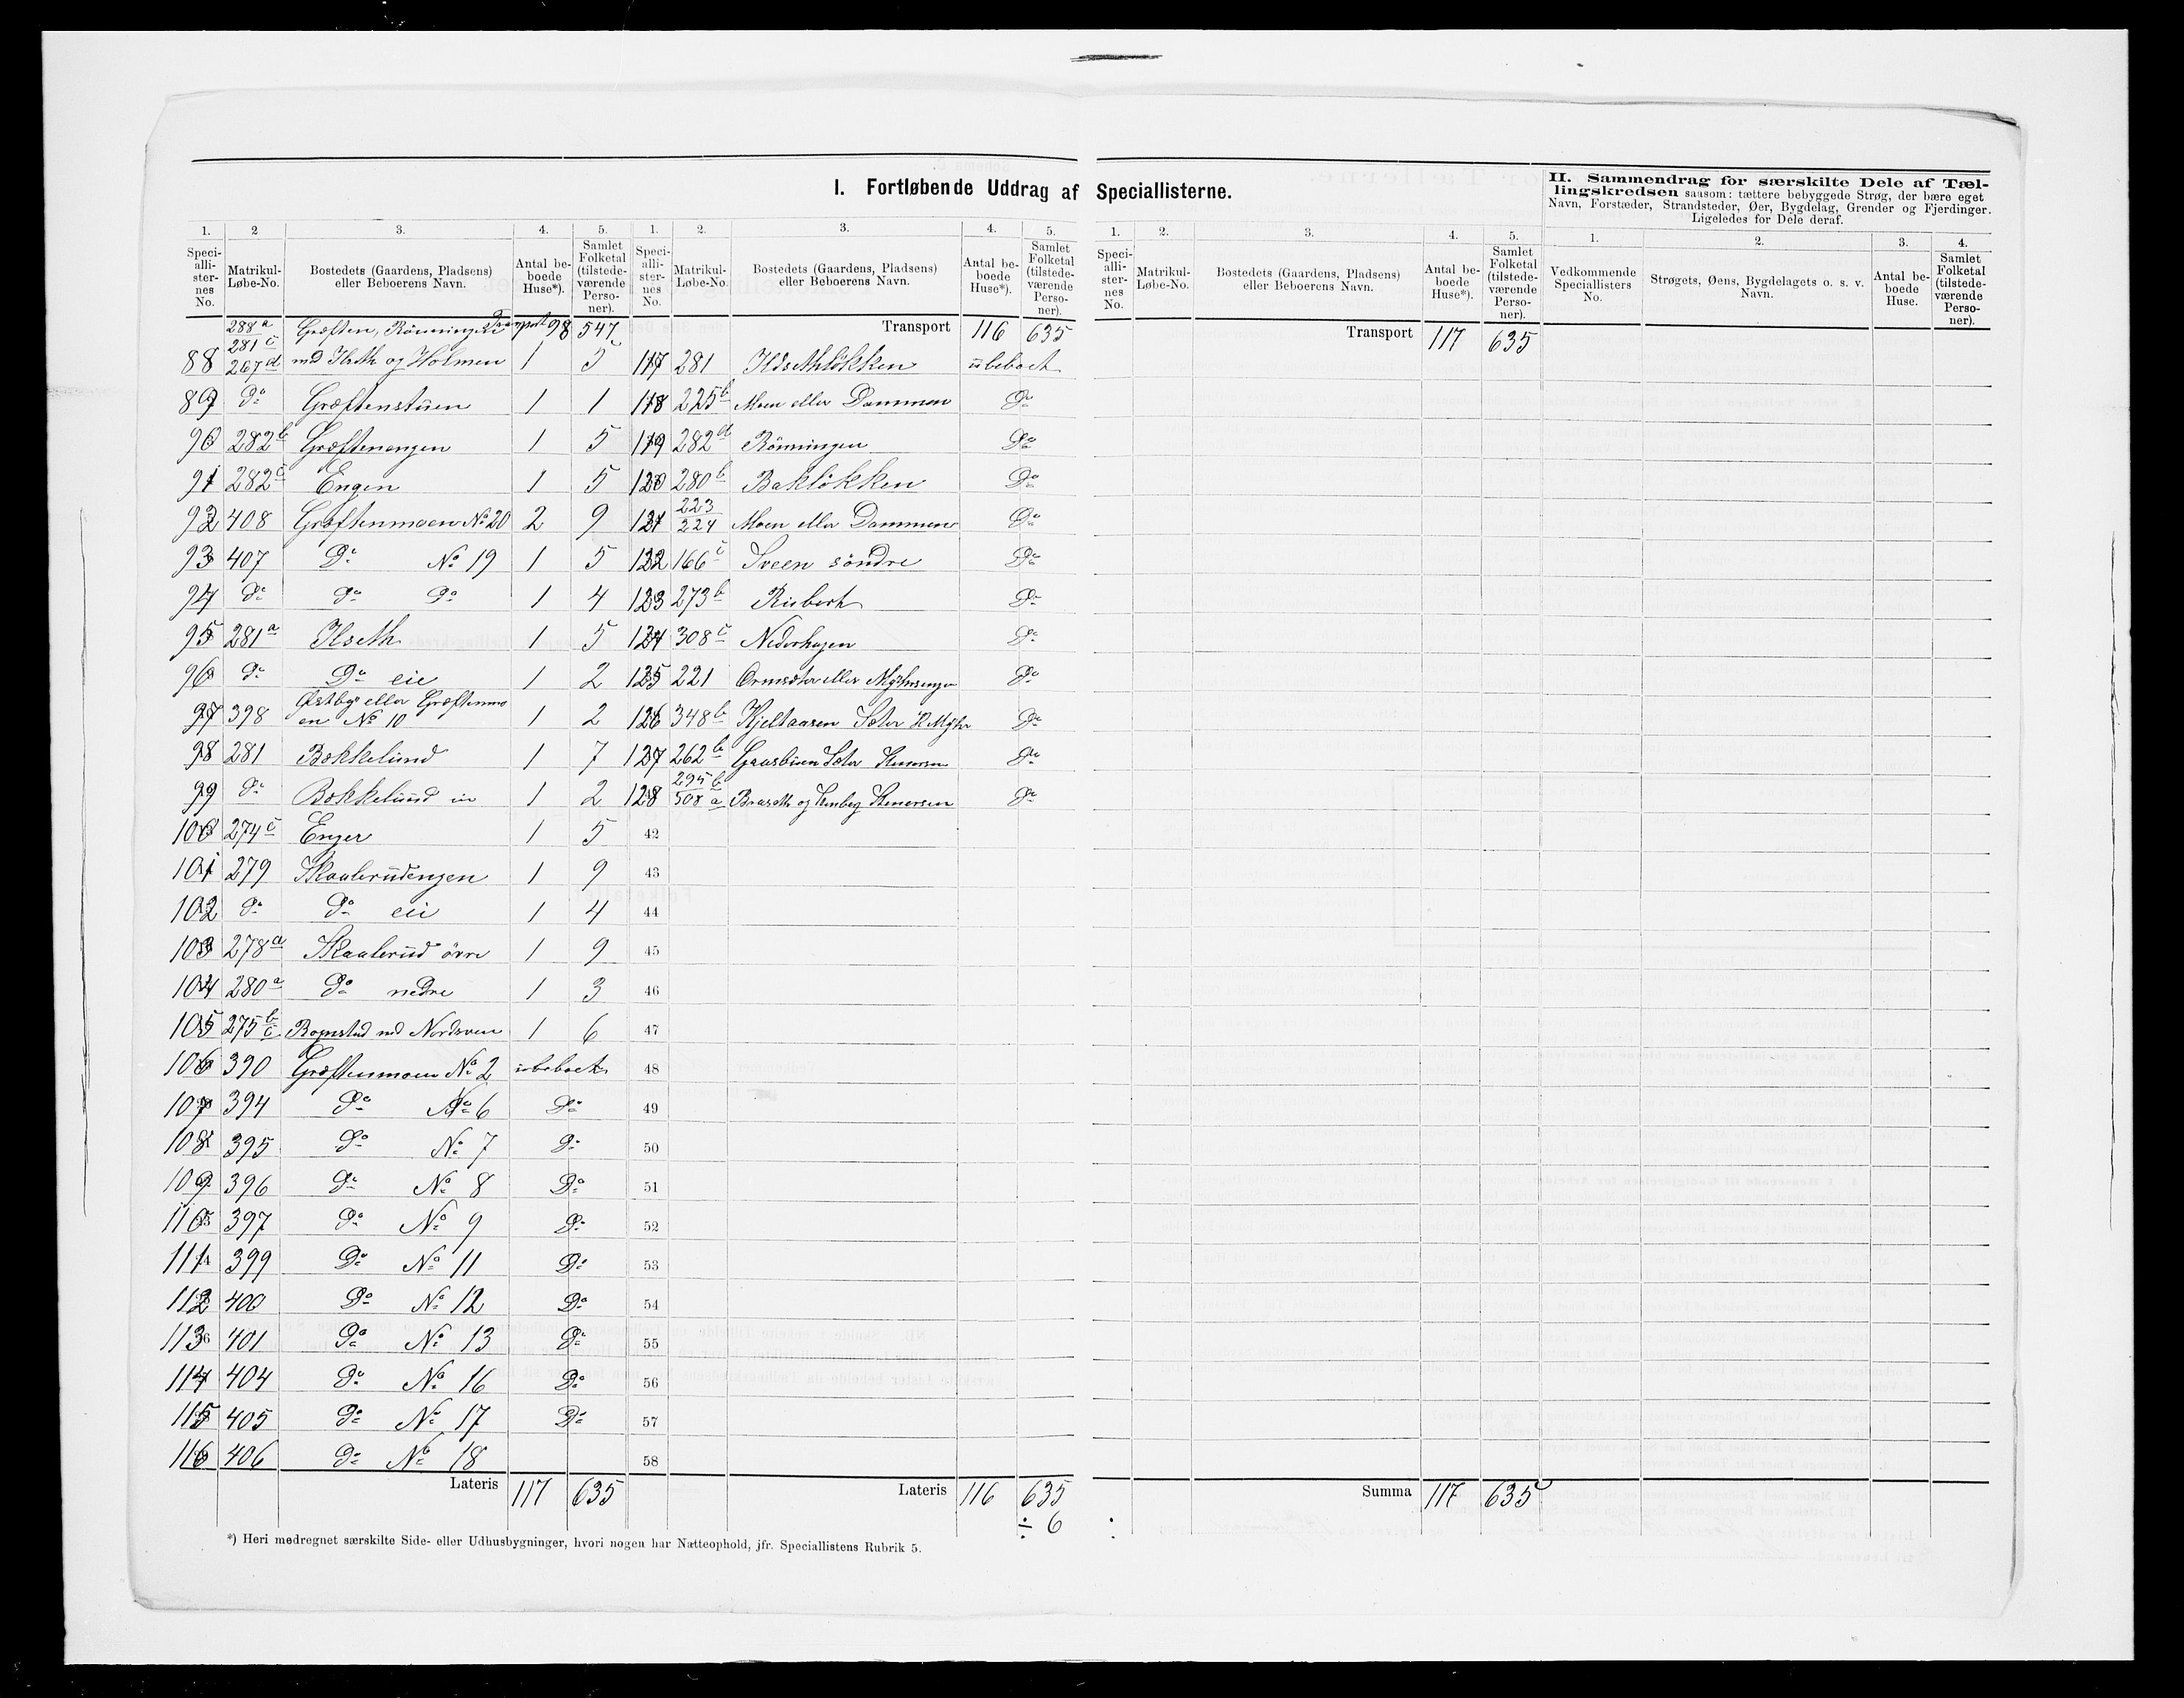 I. Fortløbende Uddrag af Speciallisterne.
II. Sammendrag for særskilte Dele af Tællingskredsen saasom: tættere bebyggede Strøg, der bære eget
Navn, Forstæder, Strandsteder, Øer, Bygdelag, Grender og Fjerdinger.
Ligeledes for Dele deraf.
1. 2 3. 4. 5.
Speciallisternes No. Matrikul-Løbe-No. Bostedets (Gaardens, Pladsens) eller Beboerens Navn. Antal beboede Huse*). Samlet Folketal (tilstedeværende Personer).
288a Græften, Rönningen Transport 98 547
281c
88 267d md Ilseth og Holmen 1 5
89 Do Græftenstuen 1 1
90 282b Græftenengen 1 5
91 282c Engen 1 5
92 408 Græftenmoen No 20 2 9
93 407 Do No 19 1 5
94 Do Do Do 1 4
95 281a Ilseth 1 5
96 Do Do eie 1 2
97 398 Østby eller Græftenmoen No 10 1 2
98 281 Bakkelund 1 7
99 Do Bakkelund eie 1 2
100 274c Enger 1 5
101 279 Skaalerudengen 1 9
102 Do Do eie 1 4
103 278a Skaalerud övre 1 9
104 280a Do nedre 1 3
105 275b c Bognstad md Nordsveen 1 6
106 390 Græftenmoen No 2 ubeboet
107 394 Do No 6 Do
108 395 Do No 7 Do
109 396 Do No 8 Do
110 397 Do No 9 Do
111 399 Do No 11 Do
112 400 Do No 12 Do
113 401 Do No 13 Do
114 404 Do No 16 Do
115 405 Do No 17 Do
116 406 Do No 18
Lateris 117 635
1. 2. 3. 4. 5.
Speciallisternes No. Matrikul-Løbe-No. Bostedets (Gaardens, Pladsens) eller Beboerens Navn. Antal beboede Huse*). Samlet Folketal (tilstedeværende Personer).
Transport 116 635
117 281 Ildsethlökken ubeboet
118 225b Moen eller Dammen Do
119 282d Rönningen Do
120 280b Baklökken Do
121 223 224 Moen eller Dammen Do
122 166c Sveen söndre Do
123 273b Do
124 308c Nederhagen Do
125 221 Ormsæter eller Do
126 348b Kjeltaasen Sæter Do
127 262b Sæter Do
128 295b 508a og Do
42
43
44
45
46
47
48
49
50
51
52
53
54
55
56
57
58
Lateris 116 635
÷ 6
1. 2. 3. 4. 5.
Speciallisternes No. Matrikul-Løbe-No. Bostedets (Gaardens, Pladsens) eller Beboerens Navn. Antal beboede Huse*). Samlet Folketal (tilstedeværende Personer).
Transport 117 635
Summa 117 635
1. 2. 3. 4.
Vedkommende Speciallisters No. Strøgets, Øens, Bygdelagets o. s. v. Navn. Antal beboede Huse. Samlet Folketal (tilstedeværende Personer).
*) Heri medregnet særskilte Side- eller Udhusbygninger, hvori nogen har Natteophold, jfr. Speciallistens Rubrik 5.